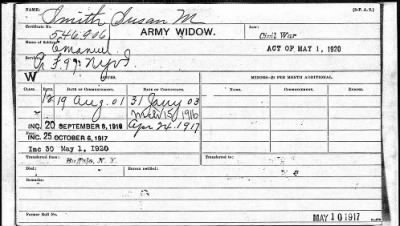 NAME: Smith Susan M (3-P. A. S.)
Certificate No. 546,906 ARMY WIDOW. Law Civil War
Name of Soldier: Emanuel ACT OF MAY 1, 1920
Service: F. 99 N.Y. V. I
W RATES. MINORS—$2 PER MONTH ADDITIONAL.
CLASS. RATE. DATE OF COMMENCEMENT. DATE OF
12 19 Aug. 01 31 Jany 03
Mar 15, 1916
INC. 20 SEPTEMBER 8, 1916 Apr 24. 1917
INC. 25 OCTOBER 6, 1917
Inc 30 May 1, 1920
Transferred from: Buffalo, N. Y. Transferred to:
Died: Bureau notified:
Remarks:
Former Roll No. MAY 10 1917